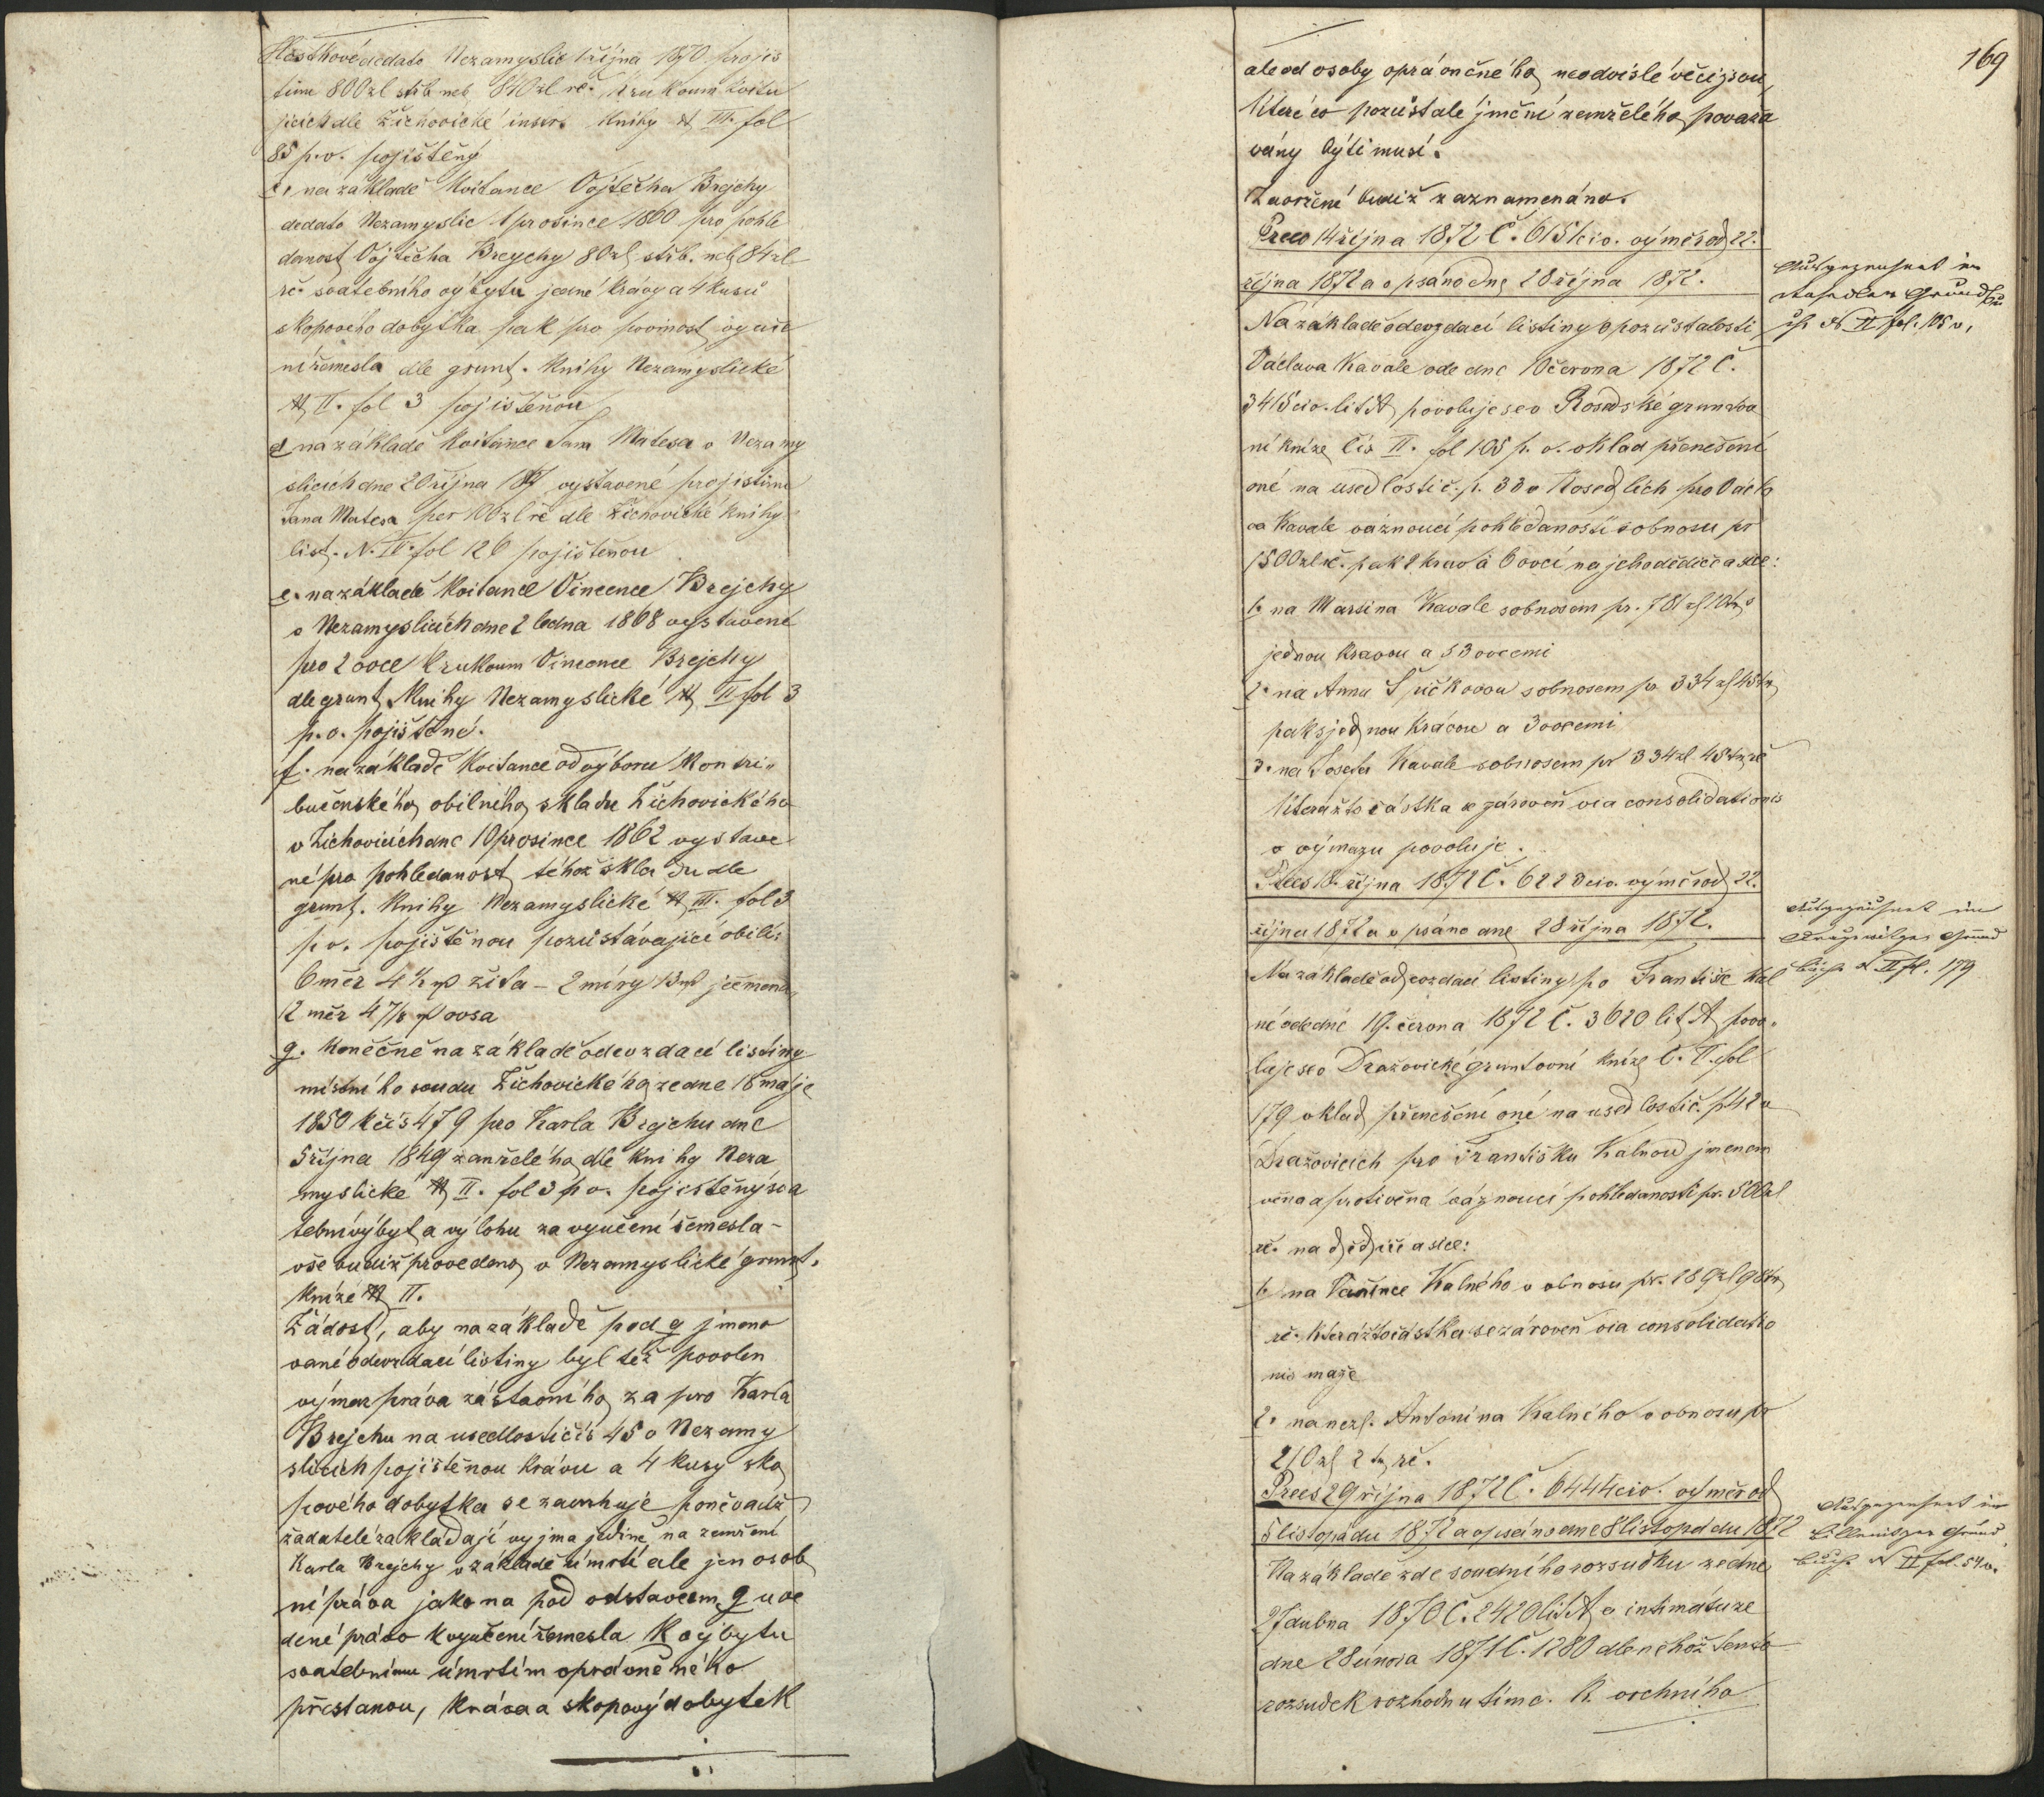 dedato Nezamyslic 1 října 1870 pro jis
tinu 800 zl střb neb 840 zl rč. k rukoum kvitu
jících dle Žichovické instr. knihy N III. fol
85 p.v. pojištěný
c, na základě kvitance Vojtěcha Brejchy
dedato Nezamyslic 1 prosince 1860 pro pohle
danost Vojtěcha Brejchy 80 zl střb. neb 84 zl
rč. svatebního výbytu jedné krávy a 4 kusů
skopového dobytka pak pro povinost vyuče
ní řemesla dle grunt. knihy Nezamyslické
N II. fol 3 pojištěnou
d na základě kvitance Jana Matesa v Nezamy
slicích dne 20 října vystavené pro jistinu
Jana Matesa per 100 zl rč dle Žichovické knihy
list. N. IV. fol 126 pojištěnou
e. na základě kvitance Vincence Brejchy
v Nezamyslicích dne 2 ledna 1868 vystavené
pro 2 ovce k rukoum Vincence Brejchy
dle grunt. knihy Nezamyslické N II fol 3
p.v. pojištěné.
f. na základě kvitance od výboru kontri-
bučenského obilního skladu Žichovického
v Žichovicích dne 10 prosince 1862 vystave
né pro pohledanost téhož skladu dle
grunt. knihy Nezamyslické N III. fol 3
p v. pojištěnou pozůstávající obilí:
6 měr 4 ½ žita – 2 míry 13 ječmena
12 měr 4 7/8 ovsa
g. konečně na základě odevzdací listiny
místního soudu Žichovického ze dne 18 maje
1850 k čís 479 pro Karla Brejchu dne
5 října 1849 zemřelého dle knihy Neza
myslické N II. fol 3 p v. pojištěný sva
tební výbyt a výlohu za vyučení řemesla –
vše budiž provedeno v Nezamyslické grunt.
knize N II.
Žádost, aby na základě pod g jmeno
vané odevzdací listiny byl též povolen
výmaz práva zástavního za pro Karla
Brejchu na usedlosti čís 45 v Nezamy
slicích pojištěnou krávu a 4 kusy sko
pového dobytka se zavrhuje poněvadž
žadatelé zakládají vyjma jedině na zemření
Karla Brejchy v základě úmrtí ale jen osob
ní práva jako na pod odstavcem g uve
dené právo k vyučení řemesla k výbytu
svatebnímu úmrtím oprávněného
přestanou, kráva a skopový dobytek
169
ale od osoby oprávněného neodvislé věci jsou,
které co pozůstalé jmění zemřelého považo
vány býti musí.
Zavržení budiž zaznamenáno.
Præs 14 října 1872 Č. 6151 civ. výměr od 22.
října 1872 a opsáno dne 28 října 1872.
Na základě odevzdací listiny o pozůstalosti
Václava Kavale ode dne 10 června 1872 Č.
3415 civ. lit A povoluje se v Rosedské gruntov
ní knize čís II. fol 105 p. v. vklad přenešení
oné na usedlosti č. p. 33 v Rosedlích pro Václ
va Kavale váznoucí pohledanosti s obnosu pr
1500 zl rč. pak 2 krav a 6 ovcí na jeho dědiče a sice:
1. na Martina Kavale s obnosem pr. 781 zl 10 kr
jednou kravou a s 3 ovcemi
2. na Annu Špičkovou s obnosem pr 334 zl 45 kr
pak s jednou krávou a 3 ovcemi
3. na Josefa Kavale s obnosem pr 334 zl 45 kr rč
kterážto částka se zároveň via consolidationis
v výmazu povoluje.
Præs 18. října 1872 Č. 6228 civ. výměr od 22.
října 1872 a opsáno dne 28 října 1872.
Na základě odevzdací listiny po Františe Kal
né ode dne 19. června 1872 č. 3620 lit A povo-
luje se v Dražovické gruntovní knize č. II. fol
179 vklad přenešení oné na usedlosti č. p 42 v
Dražovicích pro Františku Kalnou jmenem
věna a protivěna váznoucí pohledanosti pr. 500 zl
rč. na dědiče a sice:
1. na Vavřince Kalného v obnosu pr. 189 zl 98 kr
rč. kterážto částka se zároveň via consolidatio
nis maže
2. na nezl. Antonína Kalného v obnosu pr
210 zl 2 kr rč.
Præs 29 října 1872 Č. 6444 civ. výměr od
5 listopadu 1872 a opsáno dne 8 listopadu 1872
Na základě zde soudního rozsudku ze dne
27 dubna 1870 Č. 2420 lit A a intimátu ze
dne 28 února 1871 Č. 1280 dle něhož tento
rozsudek rozhodnutím c. k. vrchního
Ausgezeichnet im
Rosedler Grundbu
ch N II fol. 105 v.
Ausgezeichnet im
Grund
buch N II fol. 179
Ausgezeichnet im
Grund
buch N II fol. 54 v.